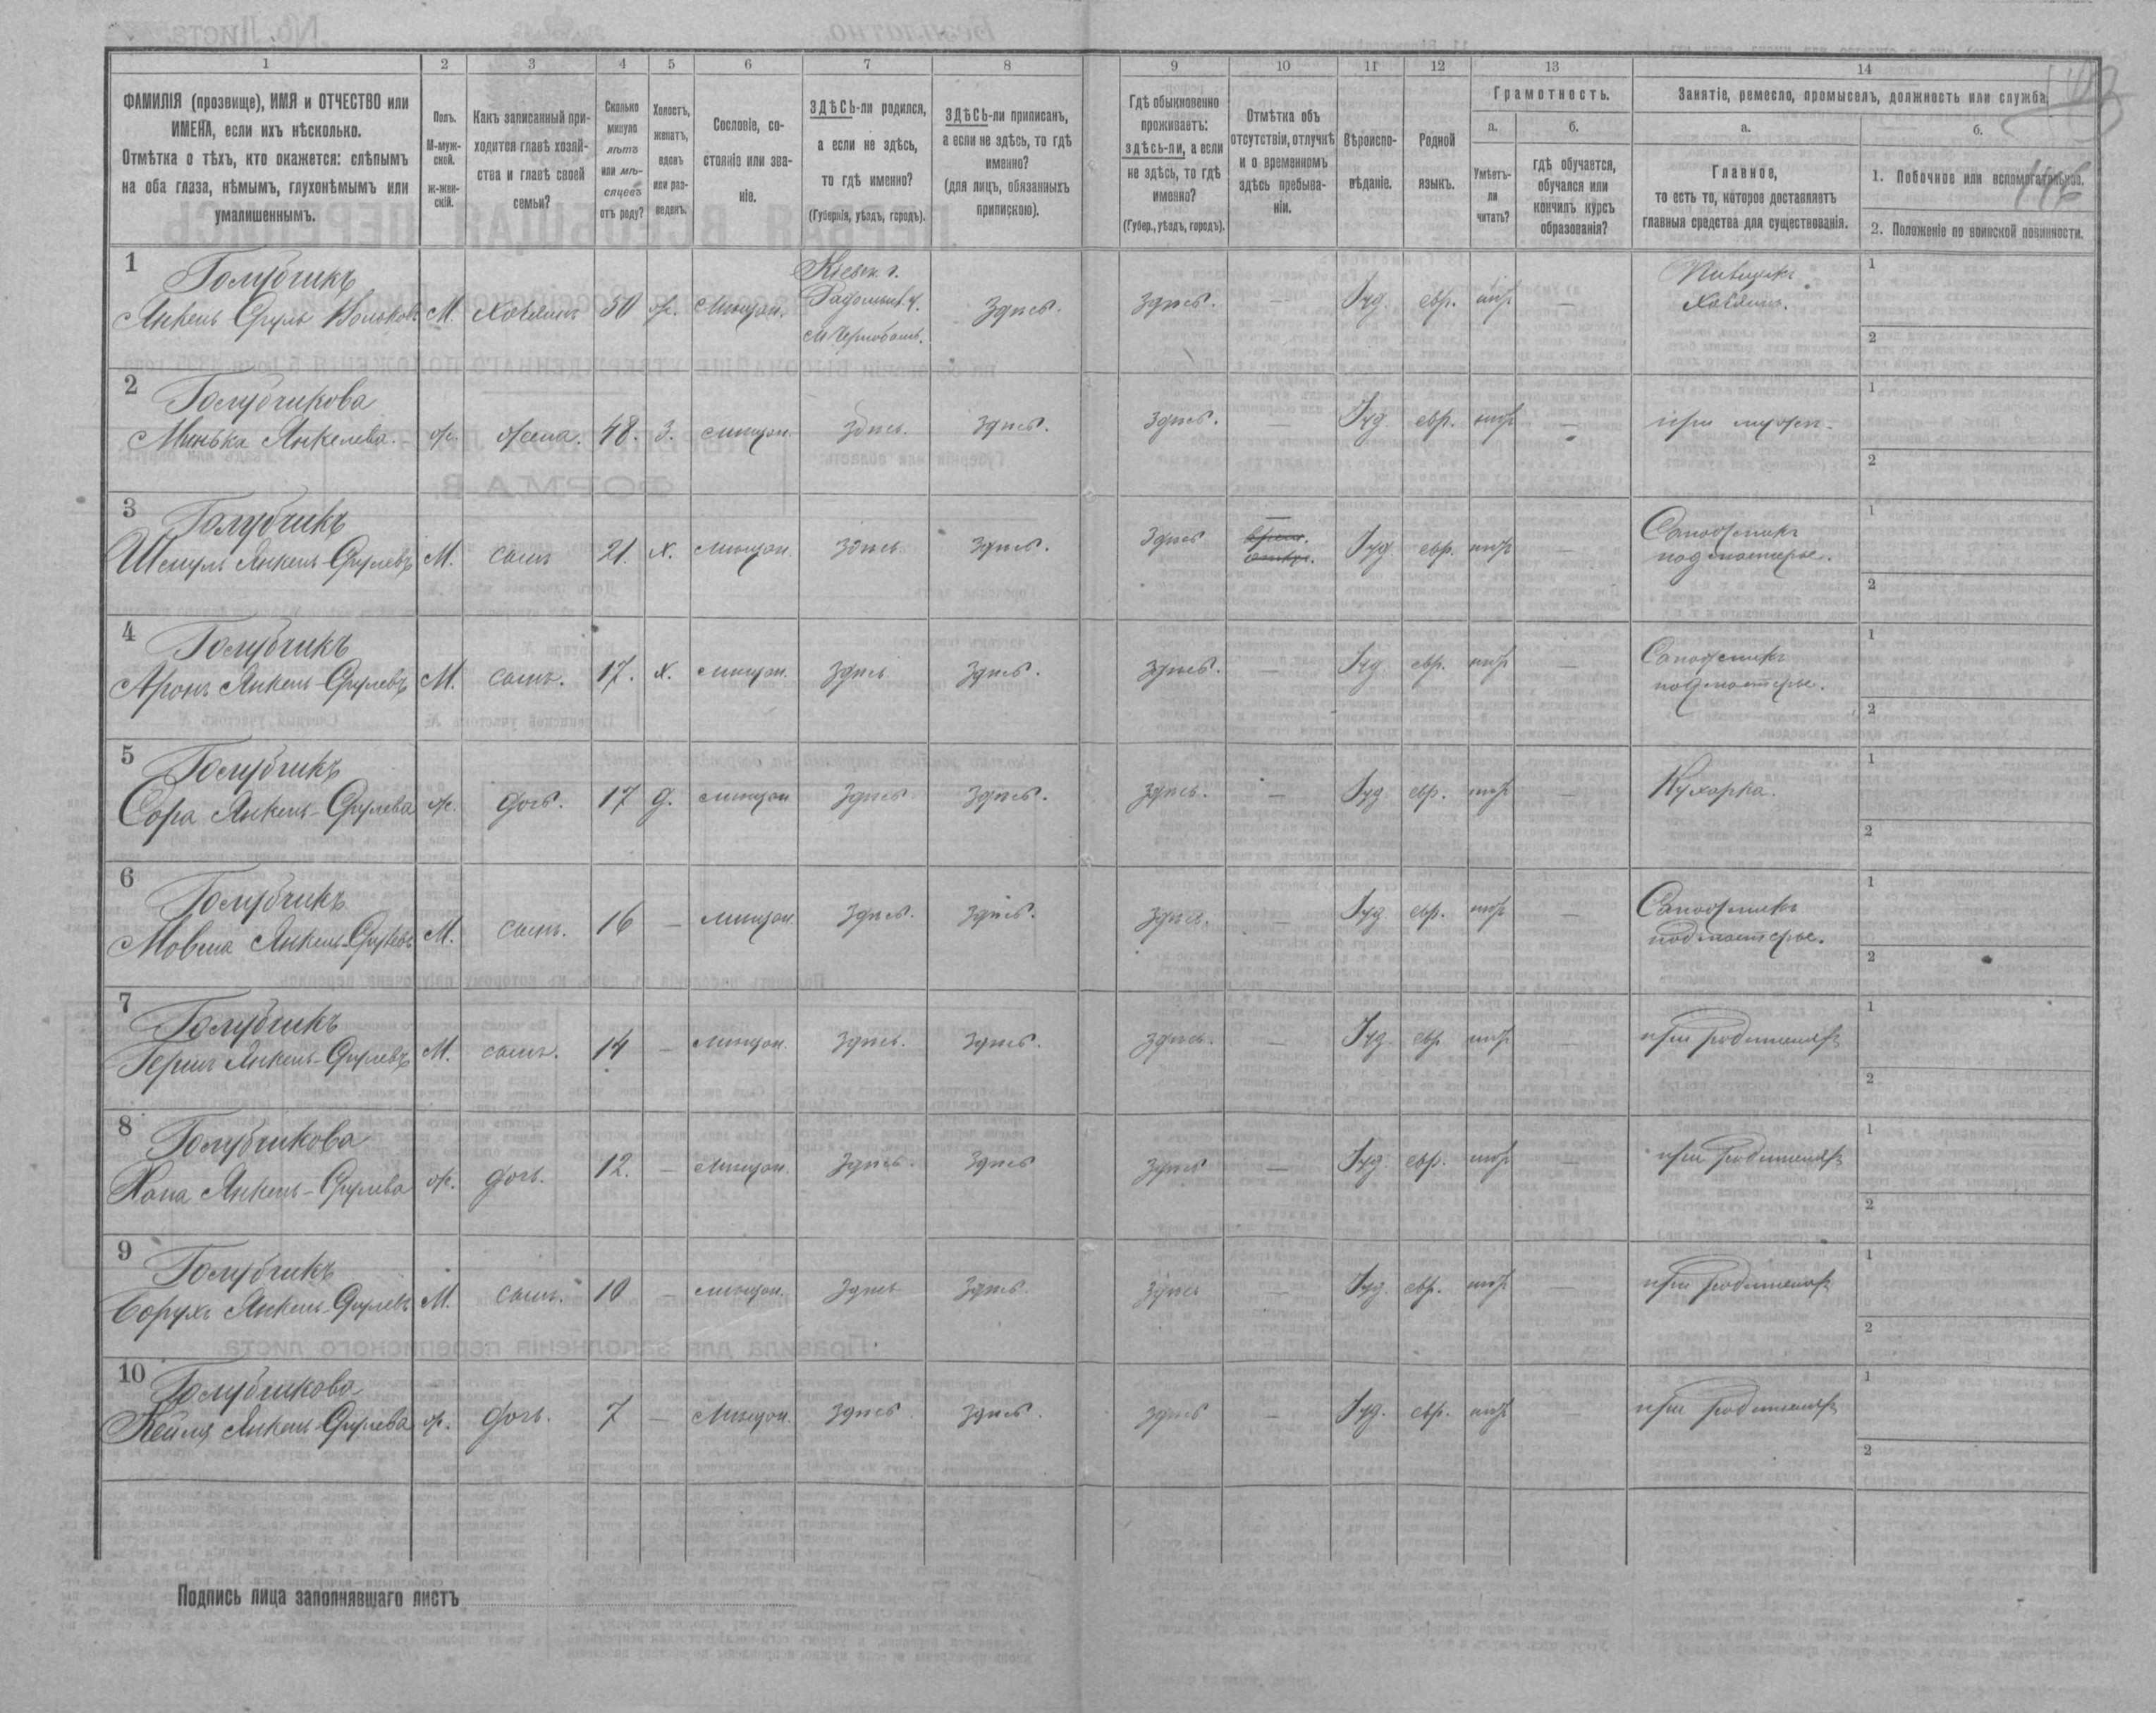 1 2 3 4 5 6 7 8 9 10 11 12 13 14
ФАМИЛІЯ (прозвище), ИМЯ и ОТЧЕСТВО или
ИМЕНА, если ихъ нѣсколько.
Отмѣтка о тѣхъ, кто окажется: слѣпымъ
на оба глаза, нѣмымъ, глухонѣмымъ или
умалишеннымъ.
Полъ.
М-муж-
ской.
ж-жен-
скій.
Какъ записанный при-
ходится главѣ хозяй-
ства и главѣ своей
семьи?
Сколько
минуло
лѣтъ
или мѣ-
сяцевъ
отъ роду?
Холостъ,
женатъ,
вдовъ
или раз-
веденъ.
Сословіе, со-
стояніе или зва-
ніе.
ЗДѢСЬ-ли родился,
а если не здѣсь,
то гдѣ именно?
(Губернія, уѣздъ, городъ).
ЗДѢСЬ-ли приписанъ,
а если не здѣсь, то гдѣ
именно?
(для лицъ, обязанныхъ
припискою).
Гдѣ обыкновенно
проживаетъ:
здѣсь-ли, а если
не здѣсь, то гдѣ
именно?
(Губер., уѣздъ, городъ).
Отмѣтка объ
отсутствіи, отлучкѣ
и о временномъ
здѣсь пребыва-
ніи.
Вѣроиспо-
вѣданіе.
Родной
языкъ.
Грамотность.
а.
Умѣетъ-
ли
читать?
б.
гдѣ обучается,
обучался или
кончилъ курсъ
образованія?
Занятіе, ремесло, промыселъ, должность или служба.
а.
Главное,
то есть то, которое доставляетъ
главныя средства для существованія.
б.
1. Побочное или вспомогательное.
2. Положеніе по воинской повинности.
116
1
Голубчикъ
Янкель Сруль Вольковъ М. хозяинъ 50 ж. мещан. Кіевск. г.
Радомысл. у.
м. Чернобыль. здѣсь. здѣсь. — Іуд. евр.
—
хозяинъ.
1
2
2
Голубчикова
Минька Янкелева. ж. жена. 48. з. мещан. здѣсь здѣсь. здѣсь. — Іуд. евр. — при мужѣ.
1
2
3
Голубчикъ
Шмуль Янкель-Срулевъ М. сынъ 21. х. мещан. здѣсь здѣсь. здѣсь — Іуд. евр. —
Сапожникъ
подмастерье.
1
2
4
Голубчикъ
Аронъ Янкель-Срулевъ М. сынъ. 17. х. мещан. здѣсь здѣсь. здѣсь. — Іуд. евр. —
Сапожникъ
подмастерье.
1
2
5
Голубчикъ
Сора Янкель-Срулева ж. дочь. 17 д. мещан здѣсь здѣсь. здѣсь. — Іуд. евр. — Кухарка.
1
2
6
Голубчикъ
Мовша Янкель-Срулевъ М. сынъ. 16 — мещан здѣсь. здѣсь. здѣсь. — Іуд евр. —
Сапожникъ
подмастерье.
1
2
7
Голубчикъ
Герш Янкель-Срулевъ М. сынъ. 14 — мещан. здѣсь. здѣсь. здѣсь. — Іуд евр — при родителяхъ
1
2
8
Голубчикова
Хана Янкель-Срулева ж. дочь. 12. — мещан. здѣсь. здѣсь здѣсь — Іуд. евр. — при родителяхъ
1
2
9
Голубчикъ
Борухъ Янкель-Срулевъ М. сынъ. 10 — мещан. здѣсь здѣсь. здѣсь — Іуд. евр. — при родителяхъ
1
2
10
Голубчикова
Кейля Янкель-Срулева ж. дочь. 7 — мещан. здѣсь. здѣсь. здѣсь — Іуд. евр. — при родителяхъ
1
2
Подпись лица заполнявшаго листъ